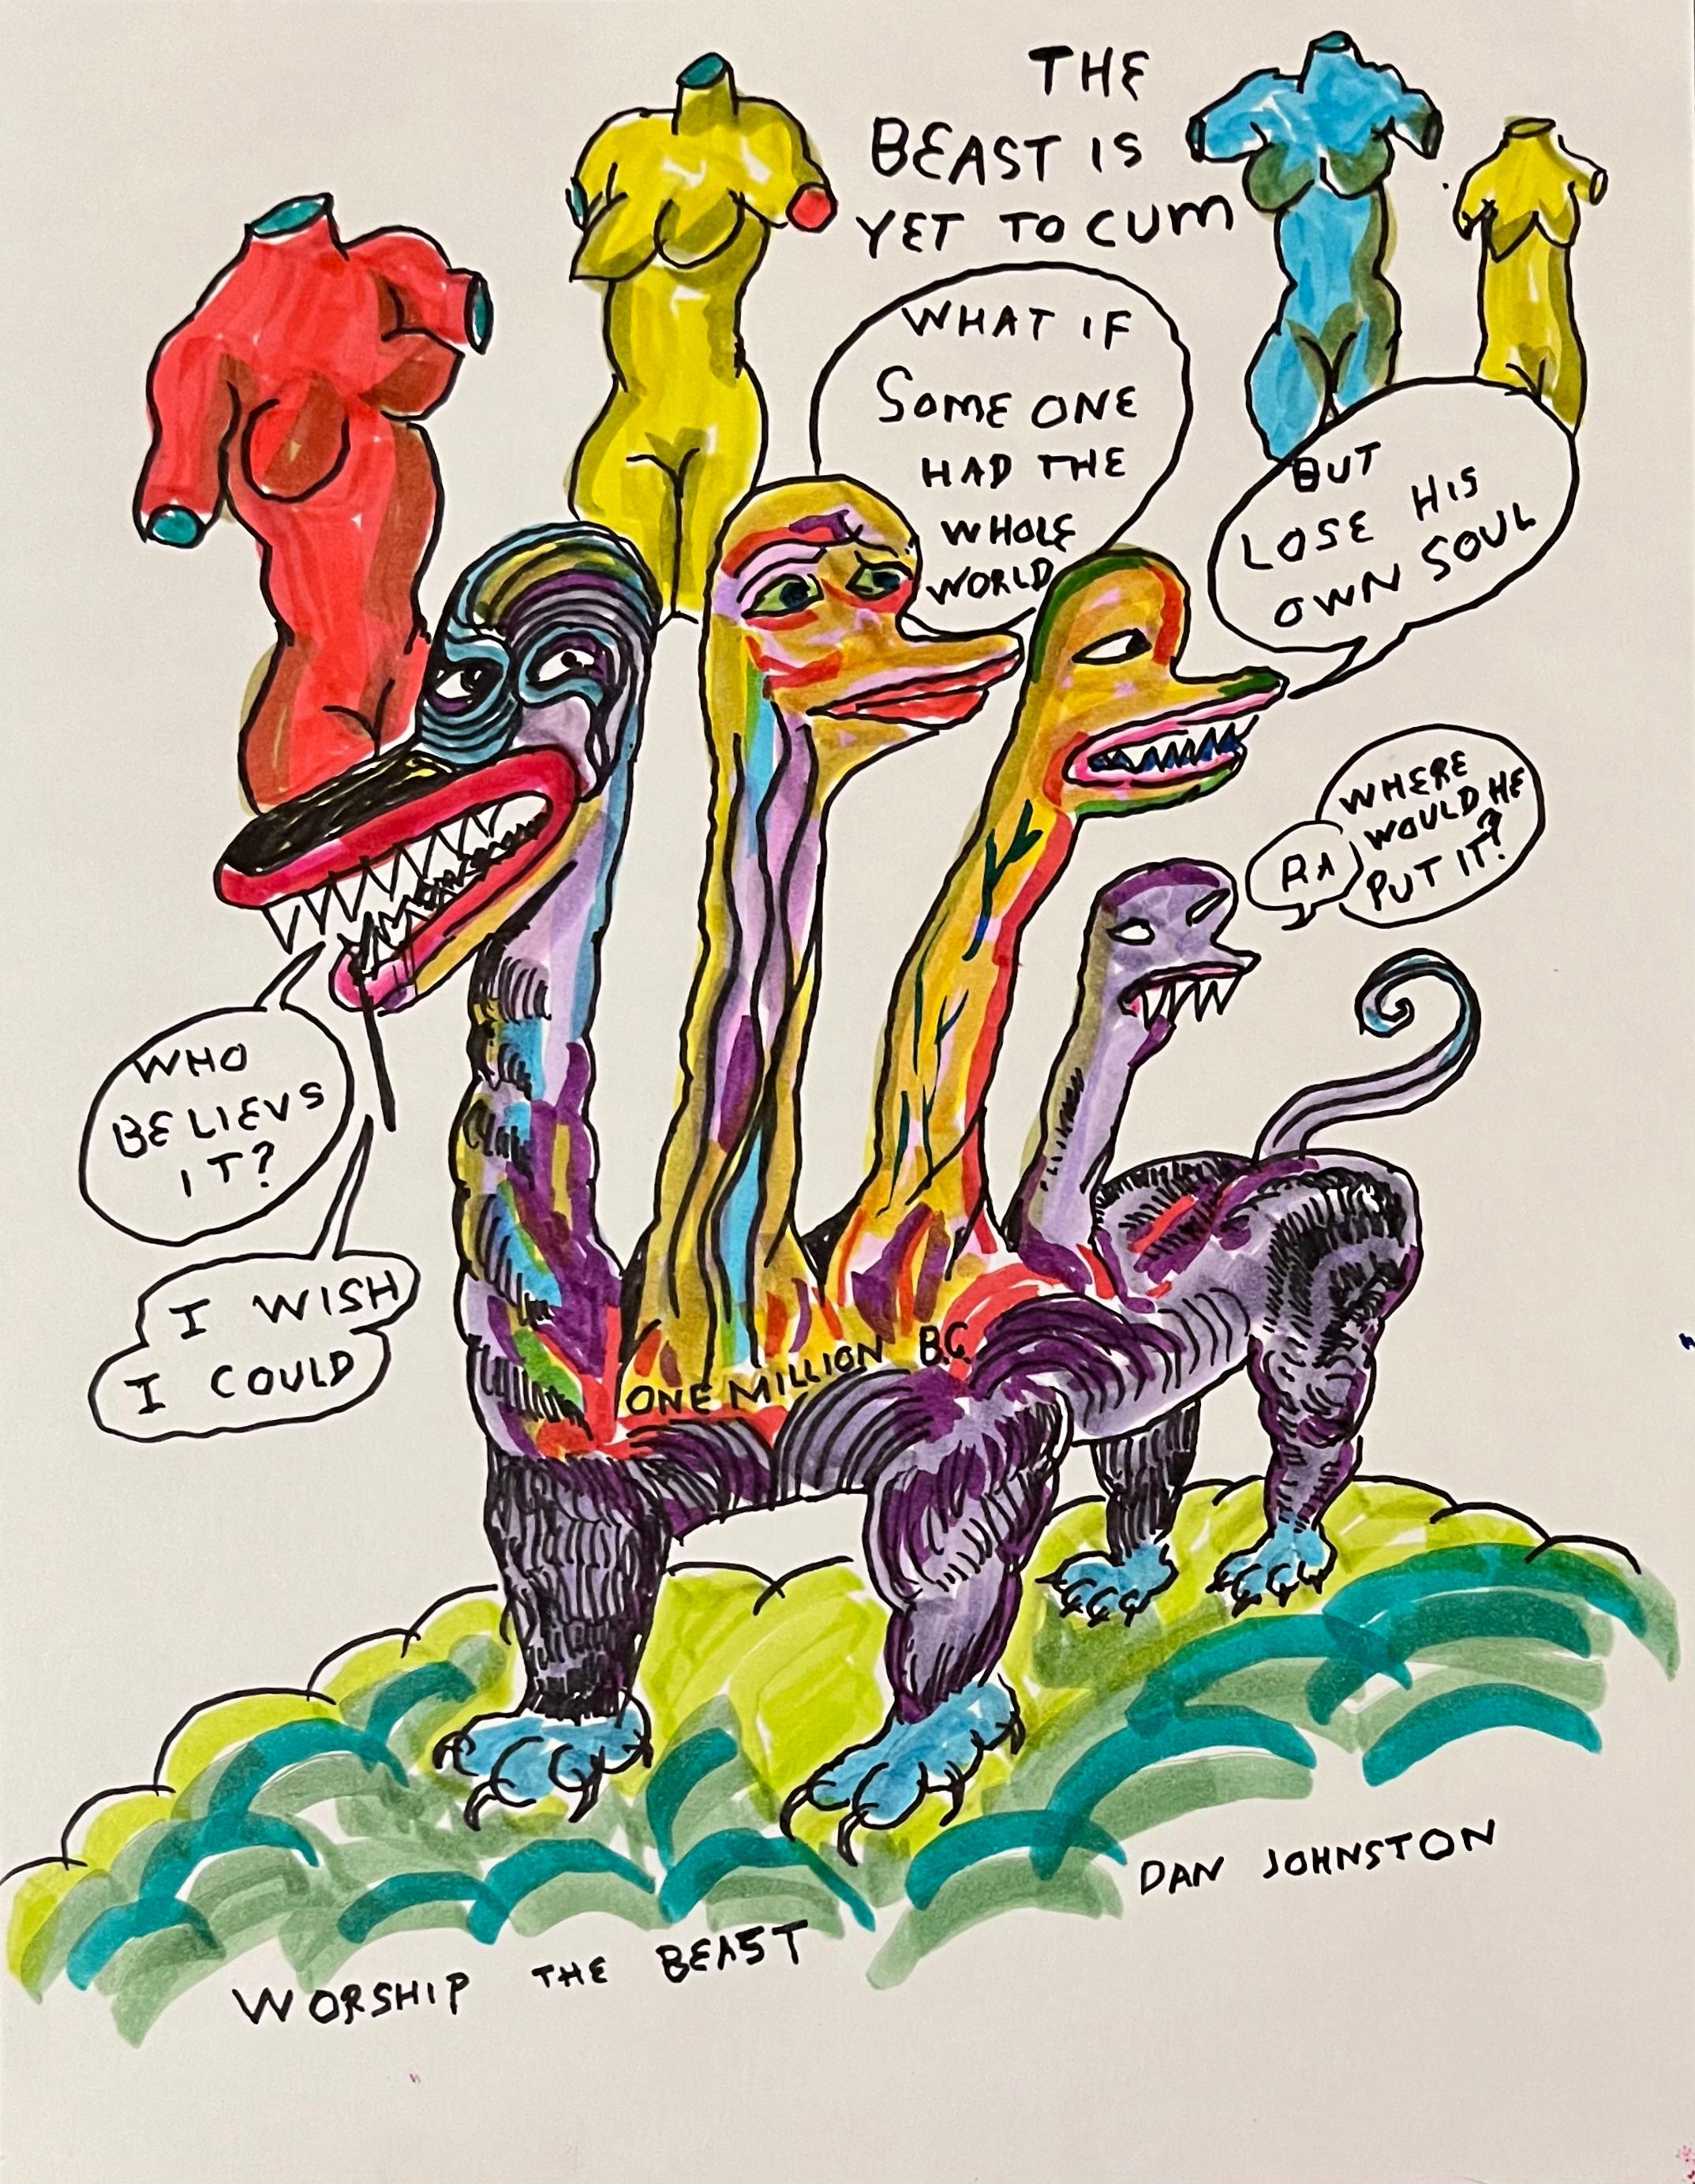 THE
BEAST IS
YET TO CUM
WHAT IF
SOME ONE
HAD THE
WHOLE
WORLD
BUT
LOSE HIS
OWN SOUL
WHERE
WOULD HE
PUT IT?
RA
WHO
BELIEVS
IT?
I WISH
I COULD
ONE MILLION B.C.
DAN JOHNSTON
WORSHIP THE BEAST